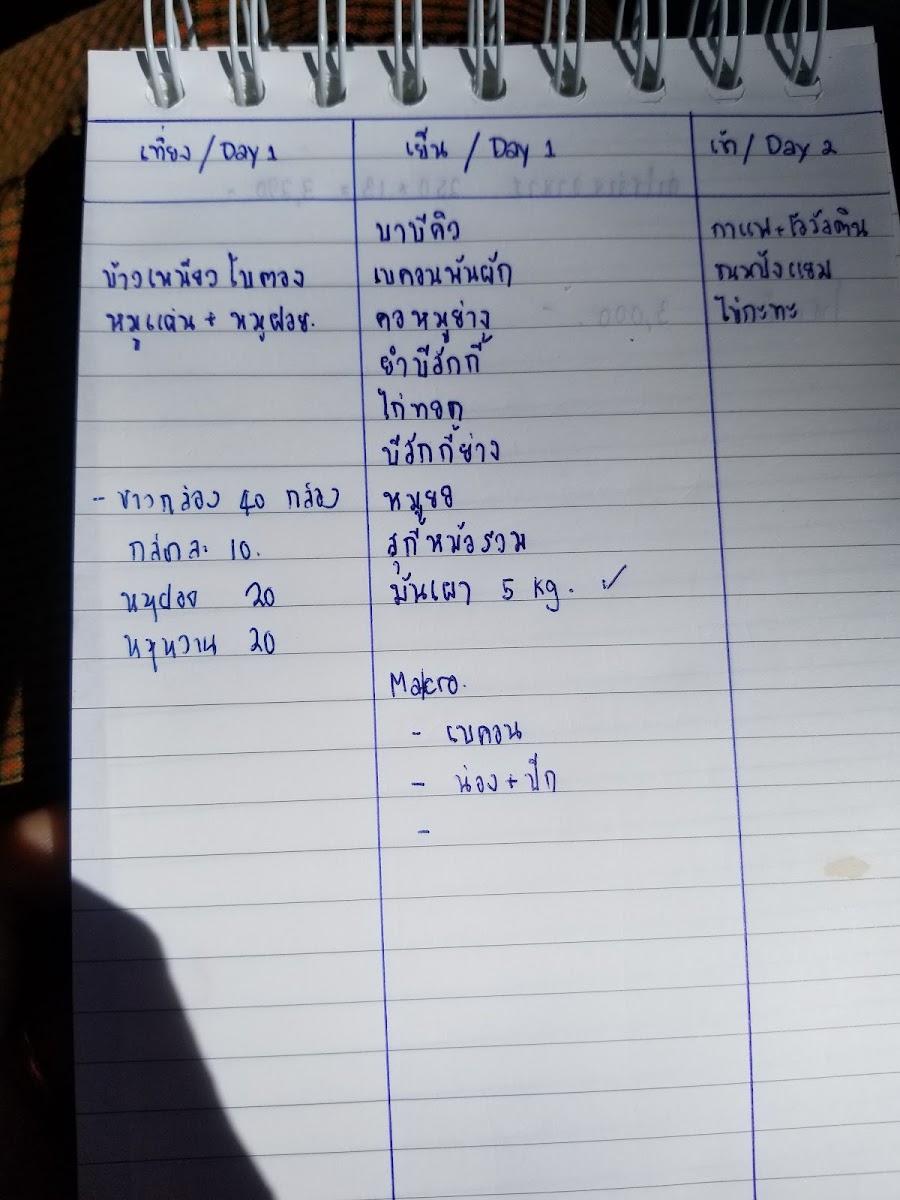 เที่ยง / Day 1
ข้าวเหนียวใบตอง
หมูแผ่น + หมูฝอย.
- ข้าวกล่อง 40 กล่อง
กล่องละ 10.
หมูฝอย 20
หมูหวาน 20
เย็น / Day 1
บาบีคิว
เบคอนพันผัก
คอหมูย่าง
ยำซีฮักกี้
ไก่ทอด
ซีฮักกี้ย่าง
หมูยอ
สุกี้หม้อรวม
มันเผา 5 kg. ✓
Makro.
- เบคอน
- น่อง + ปีก
-
เช้า / Day 2
กาแฟ + โอวัลติน
ขนมปังแยม
ไข่กะทะ